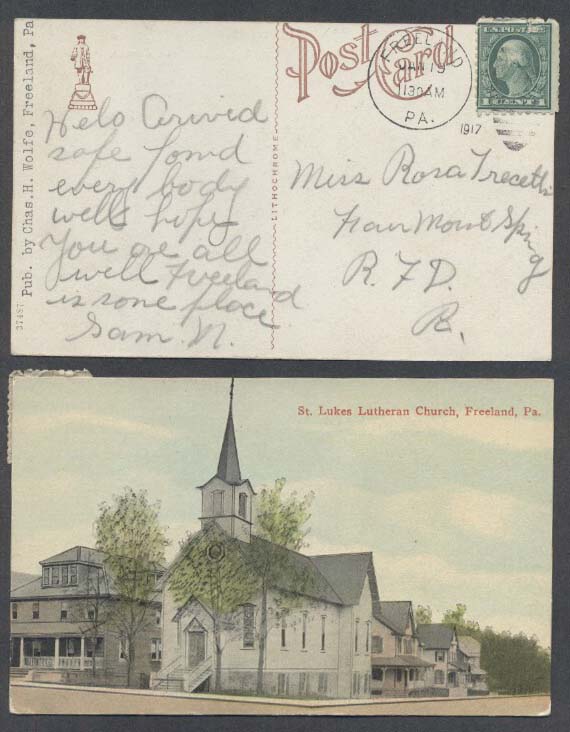 Pub. by Chas. H. Wolfe, Freeland, Pa
37487
Post Card
LITHOCHROME
FREELAND
19
1130AM
PA.
1917
Helo Arivid
safe found
every body
well hope
You are all
well Freeland
is some place
Sam. N.
Miss Rosa
Fair Mount Spring
R. F. D.
Pa.
St. Lukes Lutheran Church, Freeland, Pa.